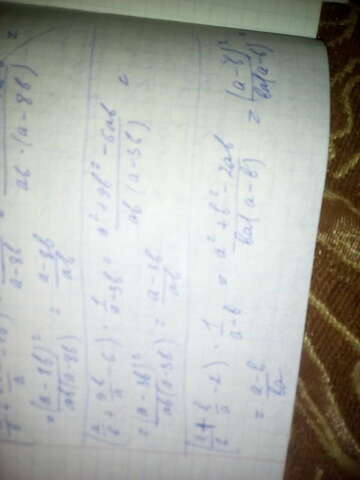 ab · (a - 8b)
= (a - 8b)² / ab(a - 8b) = a - 8b / ab
(a/b + 9b/a - 6) · 1/a - 3b = a² + 9b² - 6ab / ab(a - 3b) =
= (a - 3b)² / ab(a - 3b) = a - 3b / ab
(a/b + b/a - 2) · 1/a - b = a² + b² - 2ab / ba(a - b) = (a - b)² / ba(a - b) =
= a - b / ba